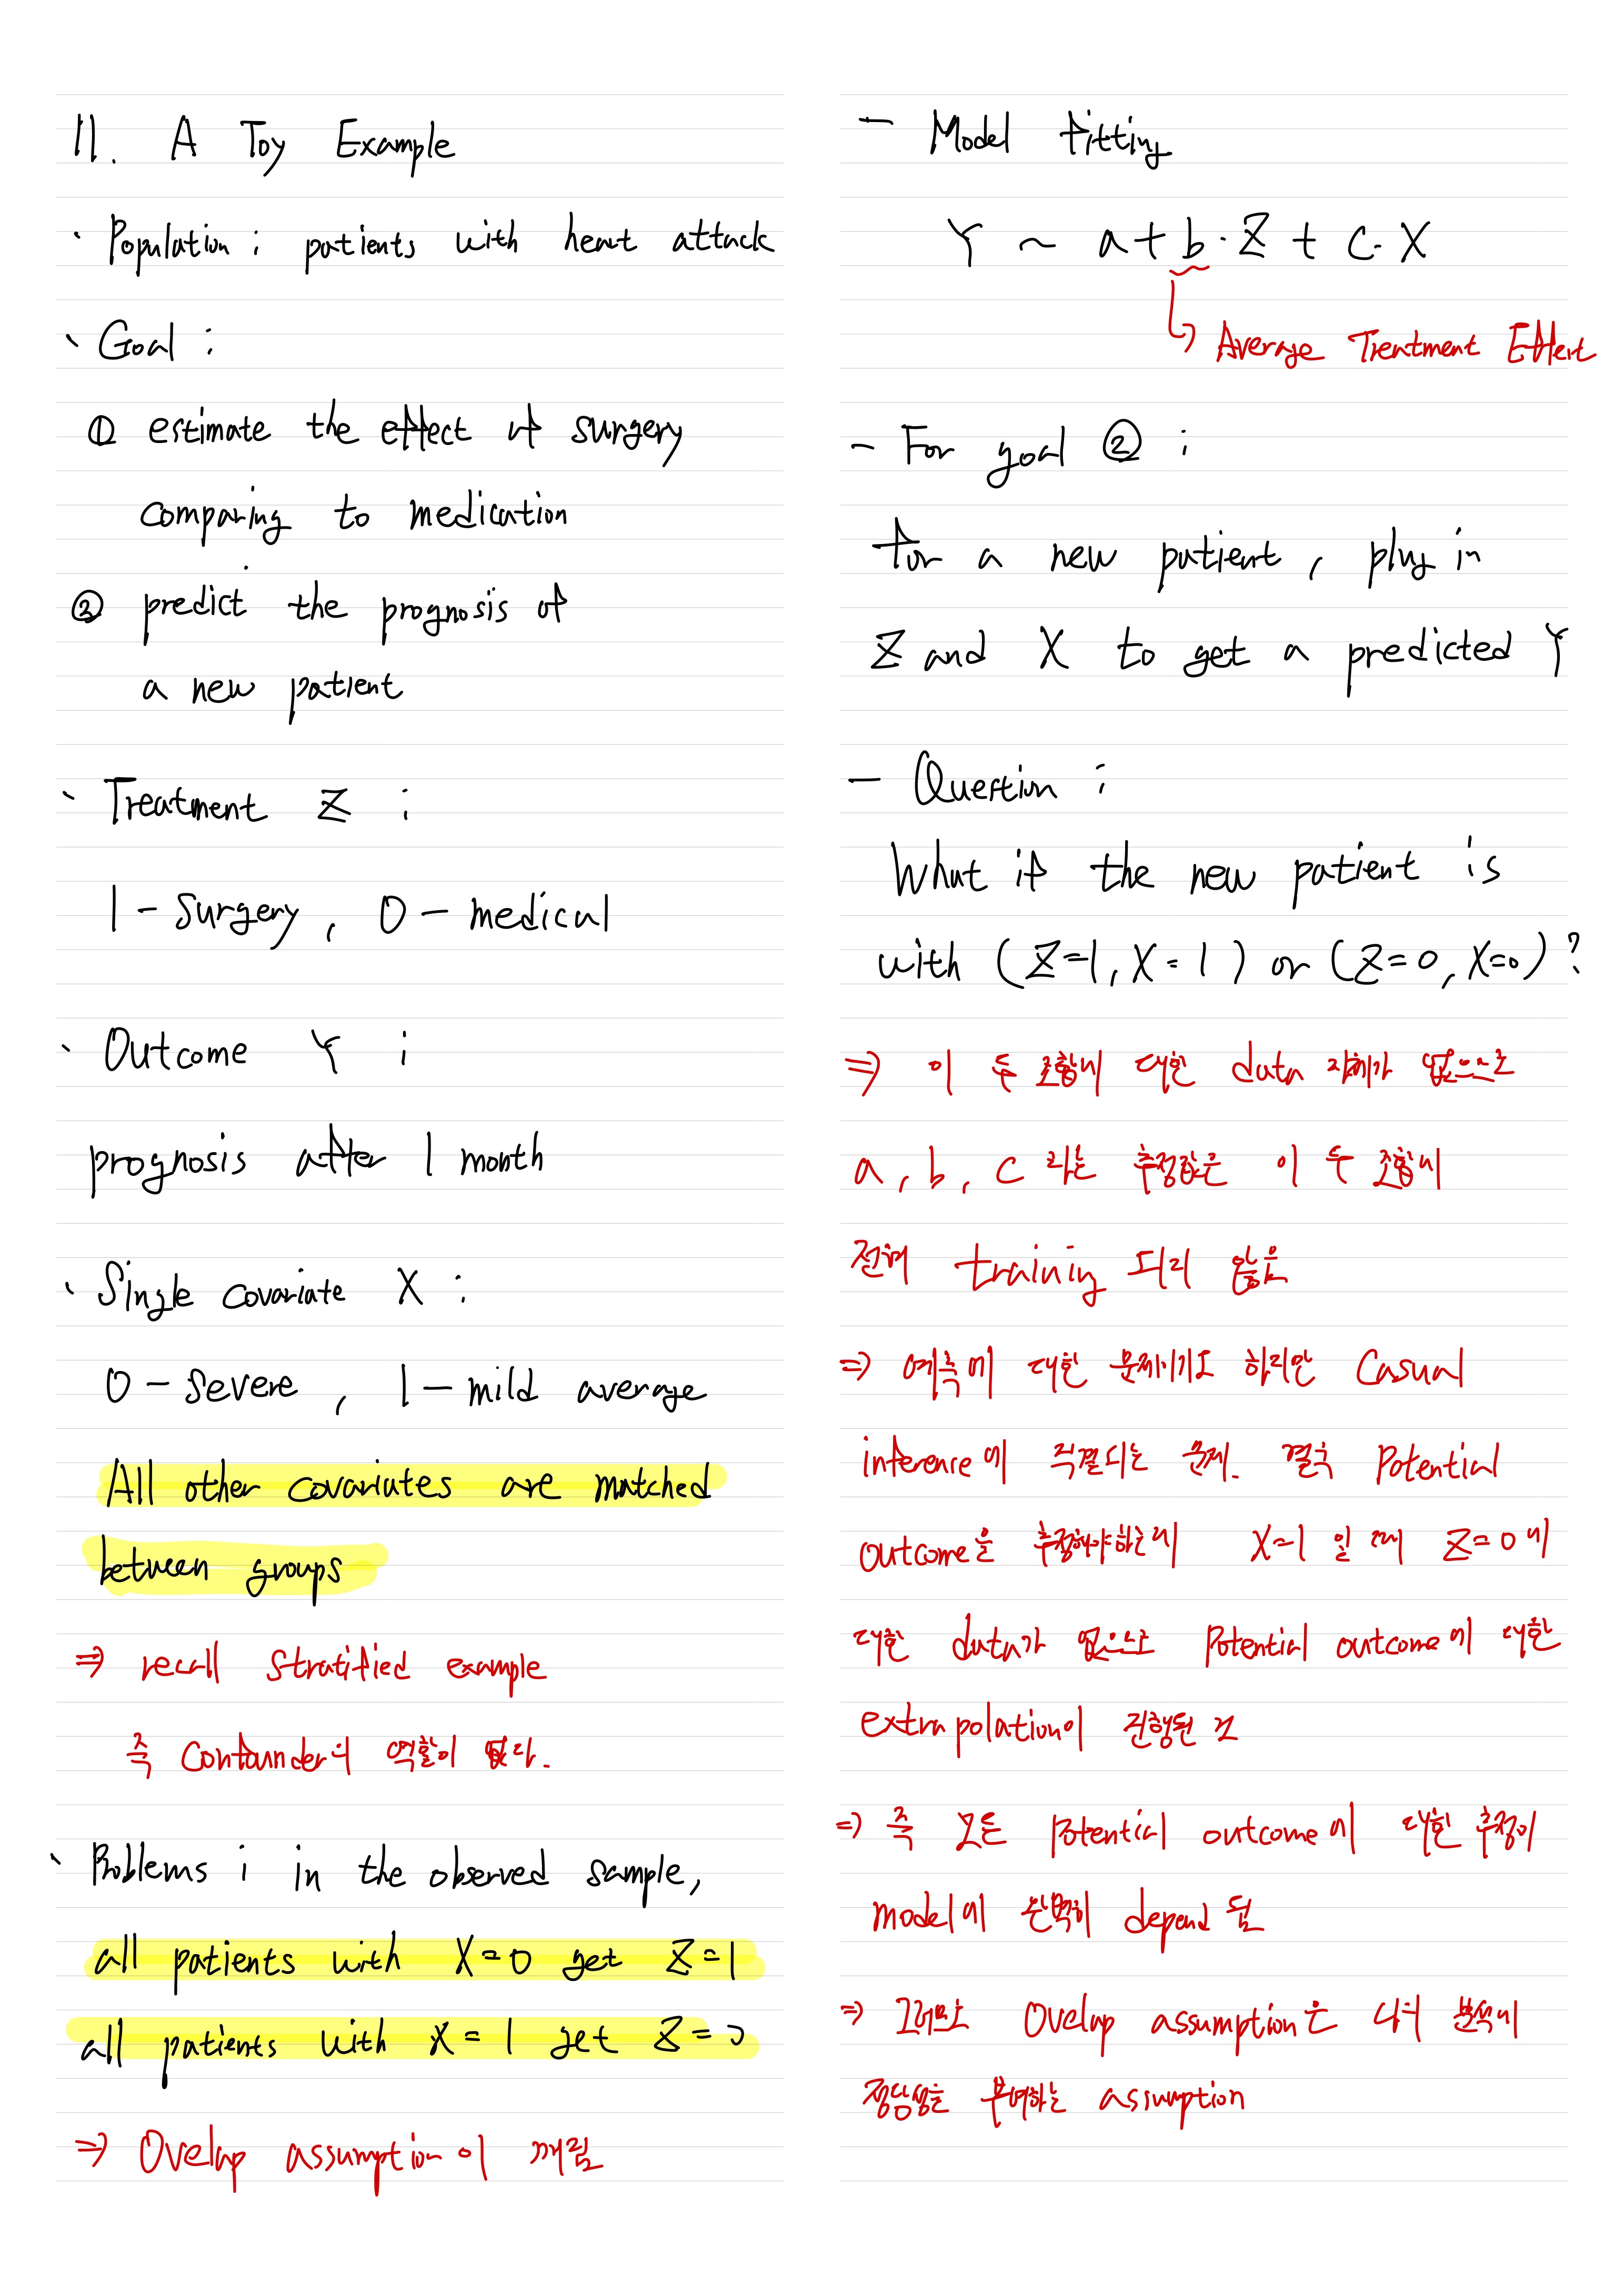 11. A Toy Example
· Population : patients with heart attack
· Goal :
① estimate the effect of surgery
comparing to medication
② predict the prognosis of
a new patient
· Treatment Z :
1 - surgery, 0 - medical
· Outcome Y :
prognosis after 1 month
· Single covariate X :
0 - severe, 1 - mild average
All other covariates are matched
between groups
⇒ recall stratified example
즉 Confounder의 역할이 없다.
· Problems : in the observed sample,
all patients with X=0 get Z=1
all patients with X=1 get Z=0
⇒ Ovelap assumption이 깨짐
- Model fitting
Y ~ a + b·Z + c·X
↳ Average Treatment Effect
- For goal ② :
for a new patient, plug in
Z and X to get a predicted Y
- Question :
What if the new patient is
with (Z=1, X=1) or (Z=0, X=0)?
⇒ 이 두 조합에 대한 data 자체가 없으므로
a, b, c 라는 추정값은 이 두 조합에
전혀 training 되지 않음
⇒ 예측에 대한 문제이기도 하지만 Casual
inference에 직결되는 문제. 결국 Potential
outcome을 추정해야하는데 X=1 일 때 Z=0에
대한 data가 없으므로 Potential outcome에 대한
extrapolation이 진행된 것
⇒ 즉 모든 Potential outcome에 대한 추정이
model에 완벽히 depend 됨
⇒ 그러므로 Ovelap assumption은 나의 분석에
정당성을 부여하는 assumption